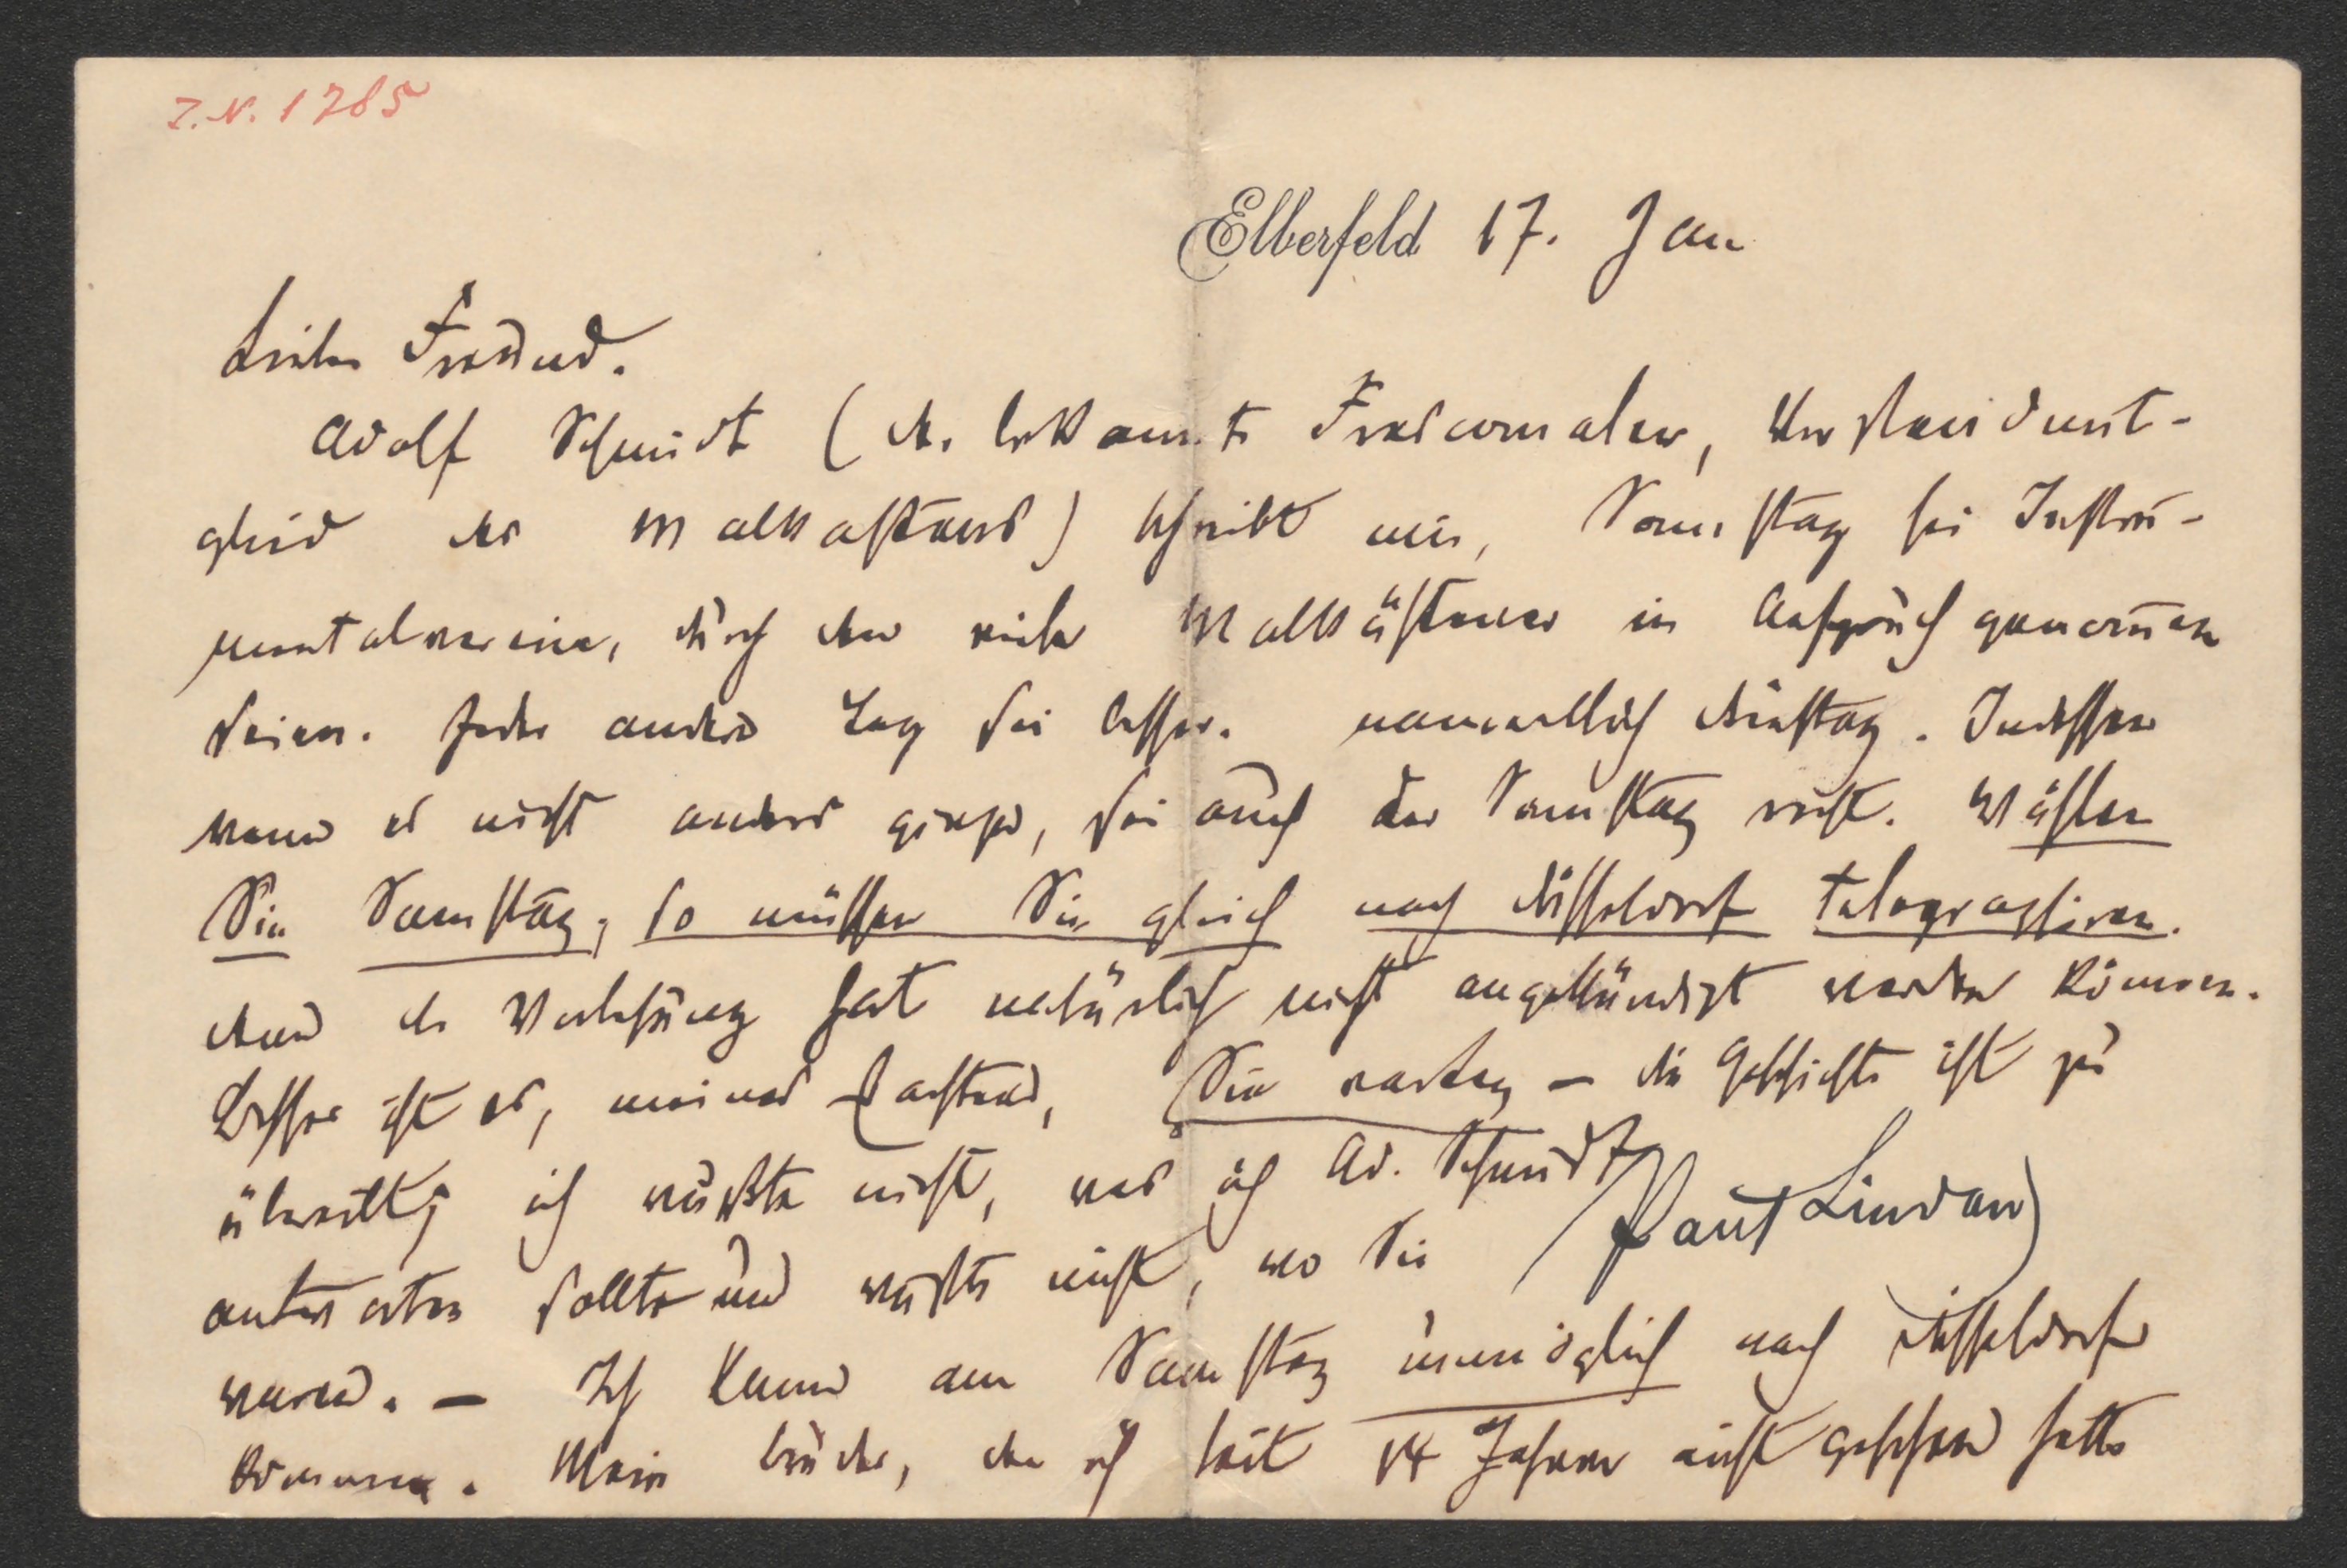 I.N. 1785
Elberfeld 17. Jan
Lieber Freund.
Adolf Schmidt (der bekannte Frescomaler, Vorstandsmit-
glied des Malkastens) schreibt mir, Samstag sei Instru-
mentalverein, durch den viele Malkästner in Anspruch genom̄en
seien. Jeder andere Tag sei besser. namentlich Dienstag. Indessen
wenn es nicht anders ginge, sei auch der Samstag recht. Wählen
Sie Samstag, so müssen Sie gleich nach Düsseldorf telegraphiren.
denn die Vorlesung hat natürlich nicht angekündigt werden können.
Besser ist es, meines Erachtens, Sie warten – die Geschichte ist zu
übereilt; ich wußte nicht, was ich Ad. Schmidt
antworten sollte und wußte nicht, wo Sie (Paul Lindau)
waren. – Ich kann am Samstag unmöglich nach Düsseldorf
kommen. Mein Bruder, den ich seit 14 Jahren nicht gesehen hatte